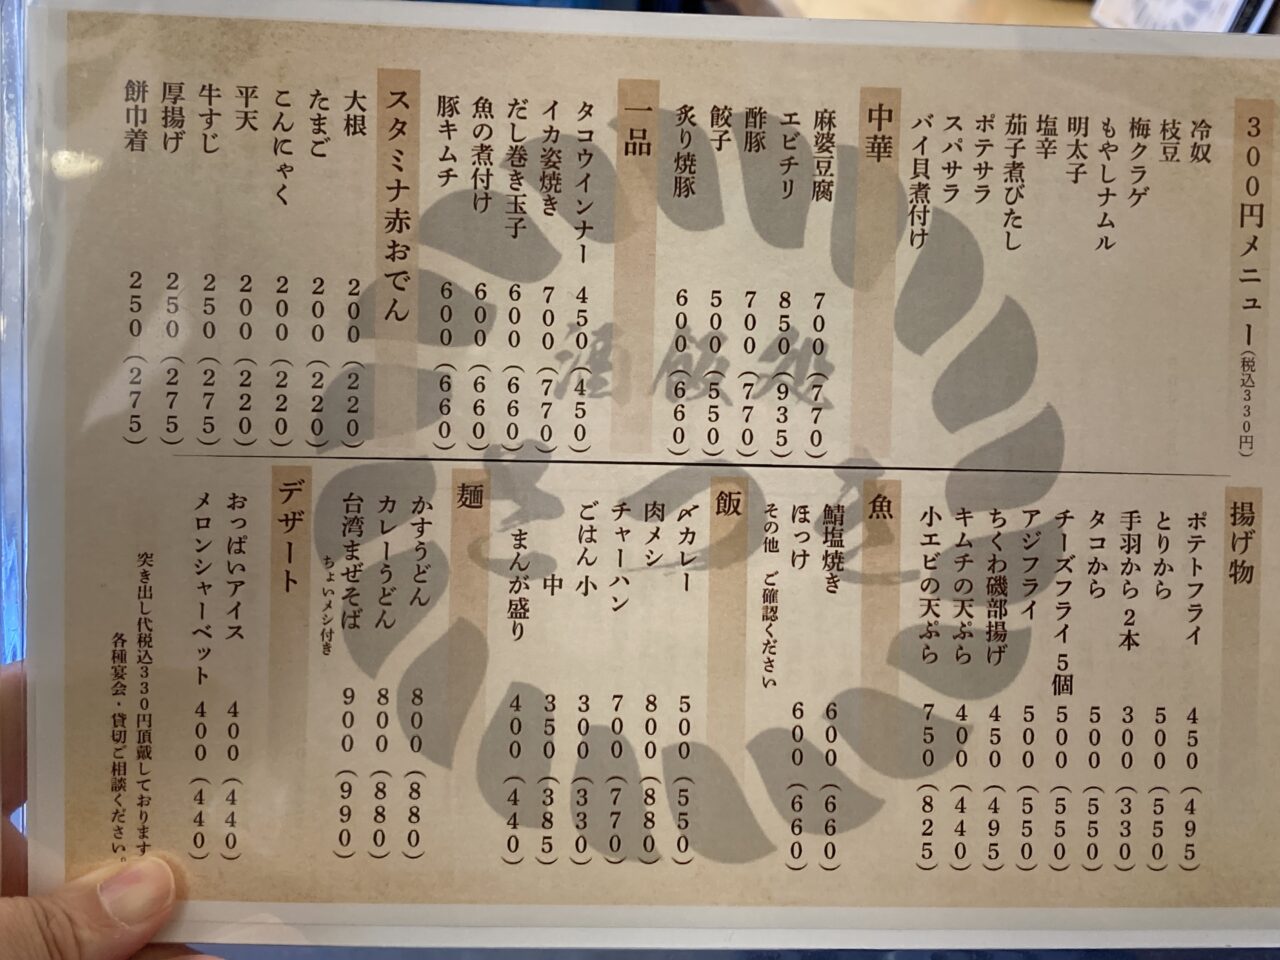 300円メニュー(税込330円)
冷奴
枝豆
梅クラゲ
もやしナムル
明太子
塩辛
茄子煮びたし
ポテサラ
スパサラ
バイ貝煮付け
中華
麻婆豆腐 700(770)
エビチリ 850(935)
酢豚 700(770)
餃子 500(550)
炙り焼豚 600(660)
一品
タコウインナー 450(450)
イカ姿焼き 700(770)
だし巻き玉子 600(660)
魚の煮付け 600(660)
豚キムチ 600(660)
スタミナ赤おでん
大根 200(220)
たまご 200(220)
こんにゃく 200(220)
平天 200(220)
牛すじ 250(275)
厚揚げ 250(275)
餅巾着 250(275)
揚げ物
ポテトフライ 450(495)
とりから 500(550)
手羽から2本 300(330)
タコから 500(550)
チーズフライ5個 500(550)
アジフライ 500(550)
ちくわ磯部揚げ 450(495)
キムチの天ぷら 400(440)
小エビの天ぷら 750(825)
魚
鯖塩焼き 600(660)
ほっけ 600(660)
その他 ご確認ください
飯
〆カレー 500(550)
肉メシ 800(880)
チャーハン 700(770)
ごはん 小 300(330)
中 350(385)
まんが盛り 400(440)
麺
かすうどん 800(880)
カレーうどん 800(880)
台湾まぜそば 900(990)
ちょいメシ付き
デザート
おっぱいアイス 400(440)
メロンシャーベット 400(440)
突き出し代税込330円頂戴しております
各種宴会・貸切ご相談ください。
酒飯処
さつき